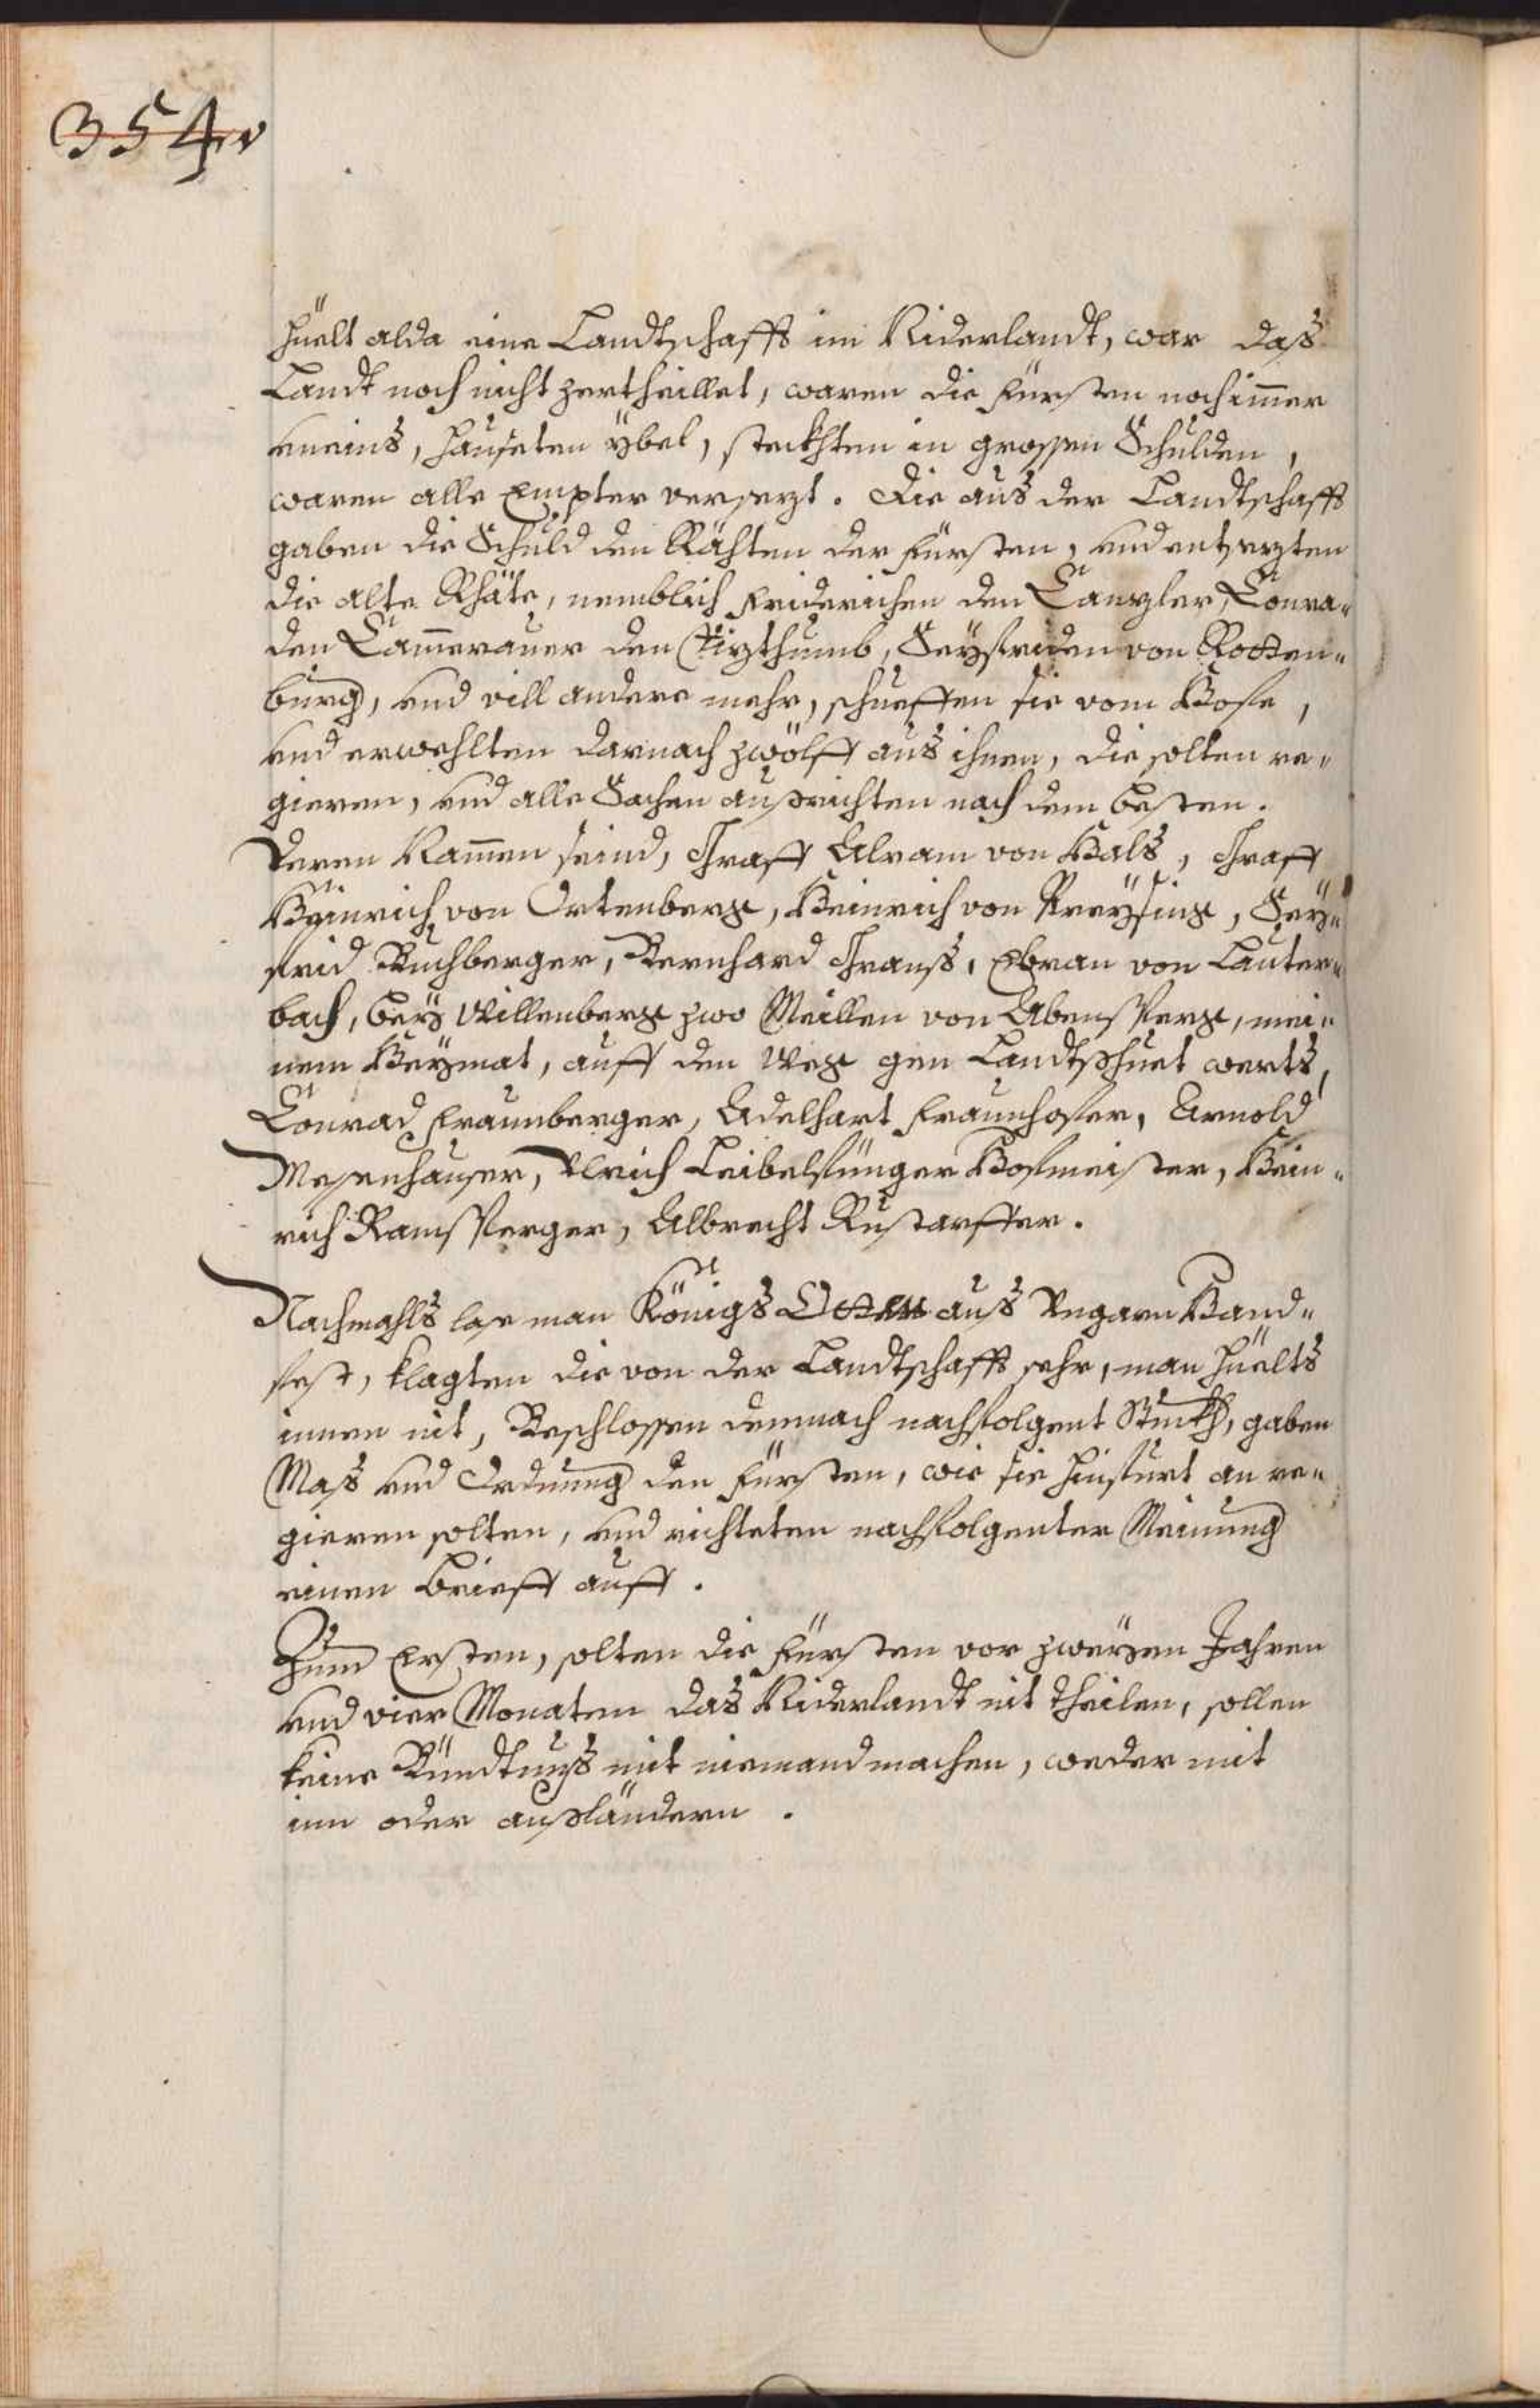 354v
hüelt alda eine Landtschafft im Niderlandt, war das
Landt noch nicht zertheillet, waren die Fürsten noch im̄er
uneins, hauseten ÿbel, steckhten in grossen Schulden,
waren alle Empter versezt. Die aus der Landtschafft
gaben die Schuld den Räthen der Fürsten, und entsezten
die alte Rhäte, nemblich Friderichen den Canzler, Conra„
den Cam̄erauer den Vizthumb, Seyfriden von Rotten„
burg, und vill andere mehr, schuefften sie vom Hofe,
und erwehlten darnach zwölff aus ihnen, die solten re„
gieren, und alle Sachen ausrichten nach dem besten.
Deren Nam̄en seind, Graff Alram von Hals, Graff
Heinrich von Ortenberg, Heinrich von Preÿsing, Seÿ„
frid Puchberger, Bernhard Granss, Ebran von Lauter„
bach, beÿ Willenberg zwo Meillen von Abensperg, mei„
nem Heÿmat, auff den Weg gen Landtshuet werts,
Conrad Fraunberger, Adelhart Fraunhofer, Arnold
Mesenhauser, Ulrich Leibelfünger Hofmeister, Hein„
rich Ramsperger, Albrecht Rustarffer.
Nachmahls lase man Königs Otten aus Ungarn Hand„
fest, klagten die von der Landtschafft sehr, man hüelts
innen nit, Beschlossen demnach nachfolgent Stuckh, gaben
Mass und Ordnung den Fürsten, wie sie hinfurt an re„
gieren solten, und richteten nachfolgenter Meinung
einen brieff auff.
Zum Ersten, solten die Fürsten vor zweÿen Jahren
und vier Monaten das Niderlandt nit theilen, sollen
keine Bündtnuss mit niemand machen, weder mit
inn oder ausländern.